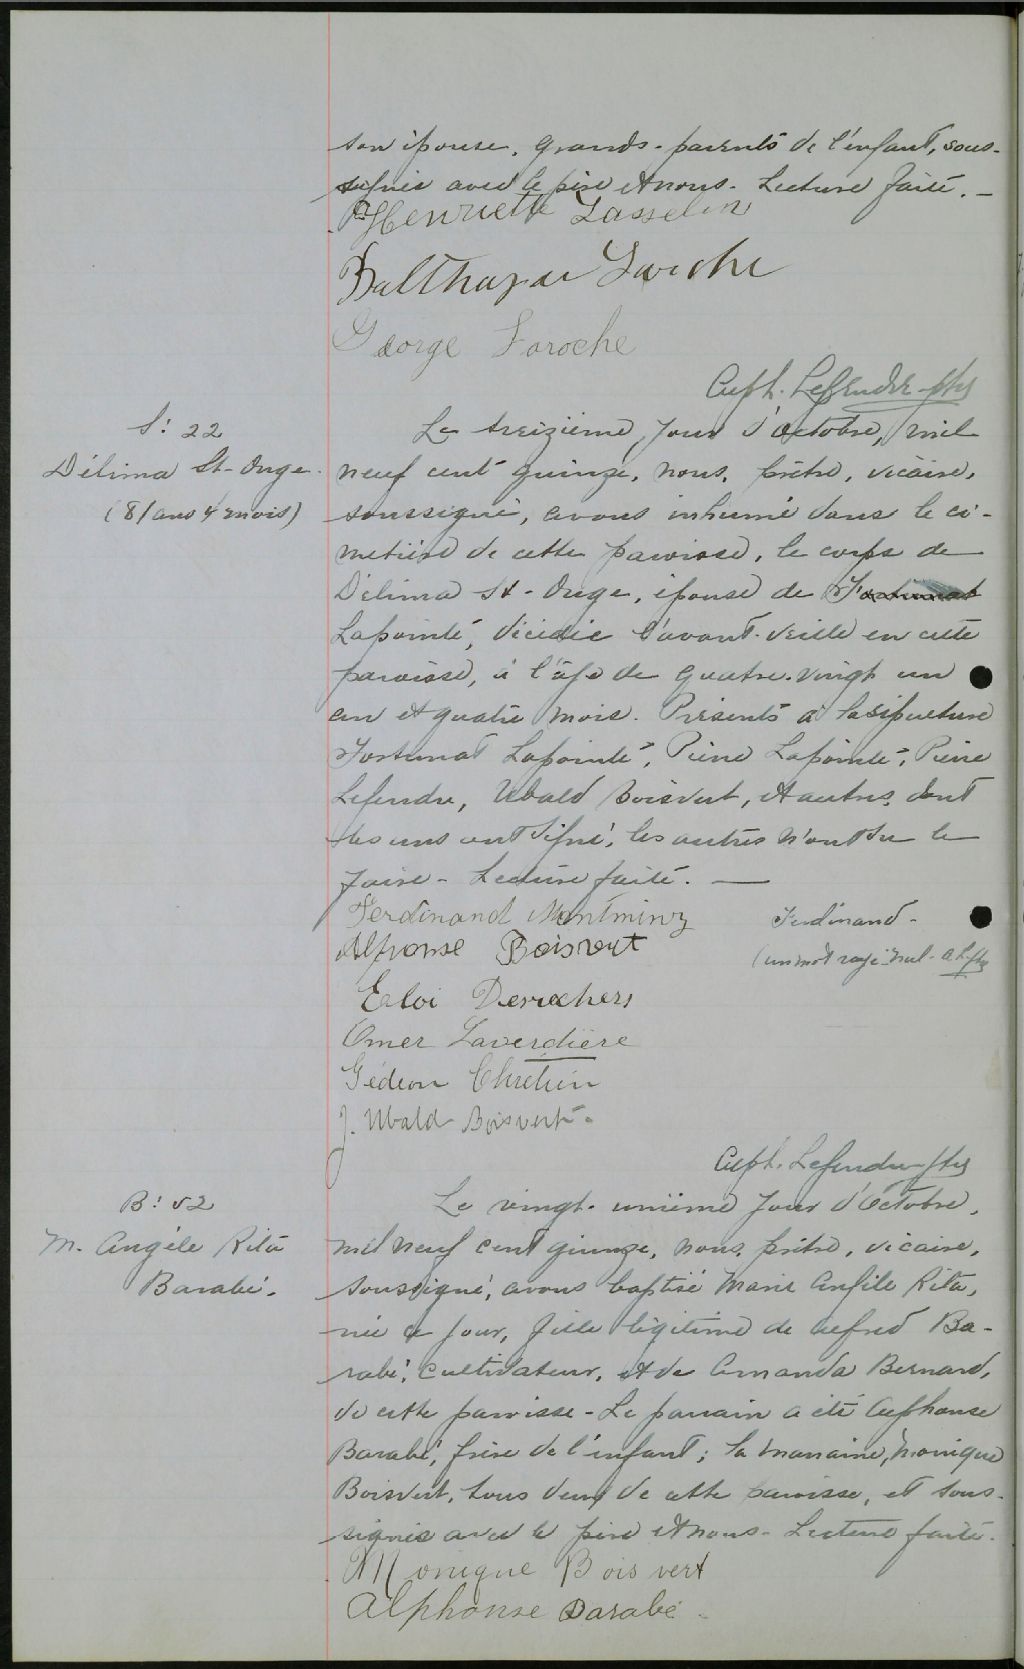 son épouse, grands-parents de l'enfant, sous-
signés avec le père et nous. Lecture faite. —
Henriette Gasselin
Balthazar Laroche
George Laroche
Alph. Lefendre ptre
S: 22
Délima St-Onge.
(81 ans 4 mois)
Le treizième jour d'octobre, mil
neuf cent quinze, nous, prêtre, vicaire,
soussigné, avons inhumé dans le ci-
metière de cette paroisse, le corps de
Délima St-Onge, épouse de Fortunat
Lapointe, décédée l'avant-veille en cette
paroisse, à l'âge de quatre-vingt un
an et quatre mois. Présents à la sépulture
Fortunat Lapointe, Pierre Lapointe, Pierre
Lefendre, Ubald Boisvert, et autres, dont
les uns ont signé, les autres n'ont su le
faire - Lecture faite. —
Ferdinand Montminy
Ferdinand -
Alphonse Boisvert
(un mot rayé nul - A L ptre
Eloi Desrochers
Omer Laverdière
Gédéon Chrétien
J. Ubald Boisvert.
Alph. Lefendre ptre
B: 52
M. Angèle Rita
Barabé.
Le vingt-unième jour d'Octobre,
mil neuf cent quinze, nous, prêtre, vicaire,
soussigné, avons baptisé Marie Angèle Rita,
née ce jour, fille légitime de Alfred Ba-
rabé, cultivateur, et de Amanda Bernard,
de cette paroisse - Le parrain a été Alphonse
Barabé, frère de l'enfant; la marraine, Monique
Boisvert, tous deux de cette paroisse, et sous-
signés avec le père et nous - Lecture faite.
Monique Boisvert
Alphonse Barabé